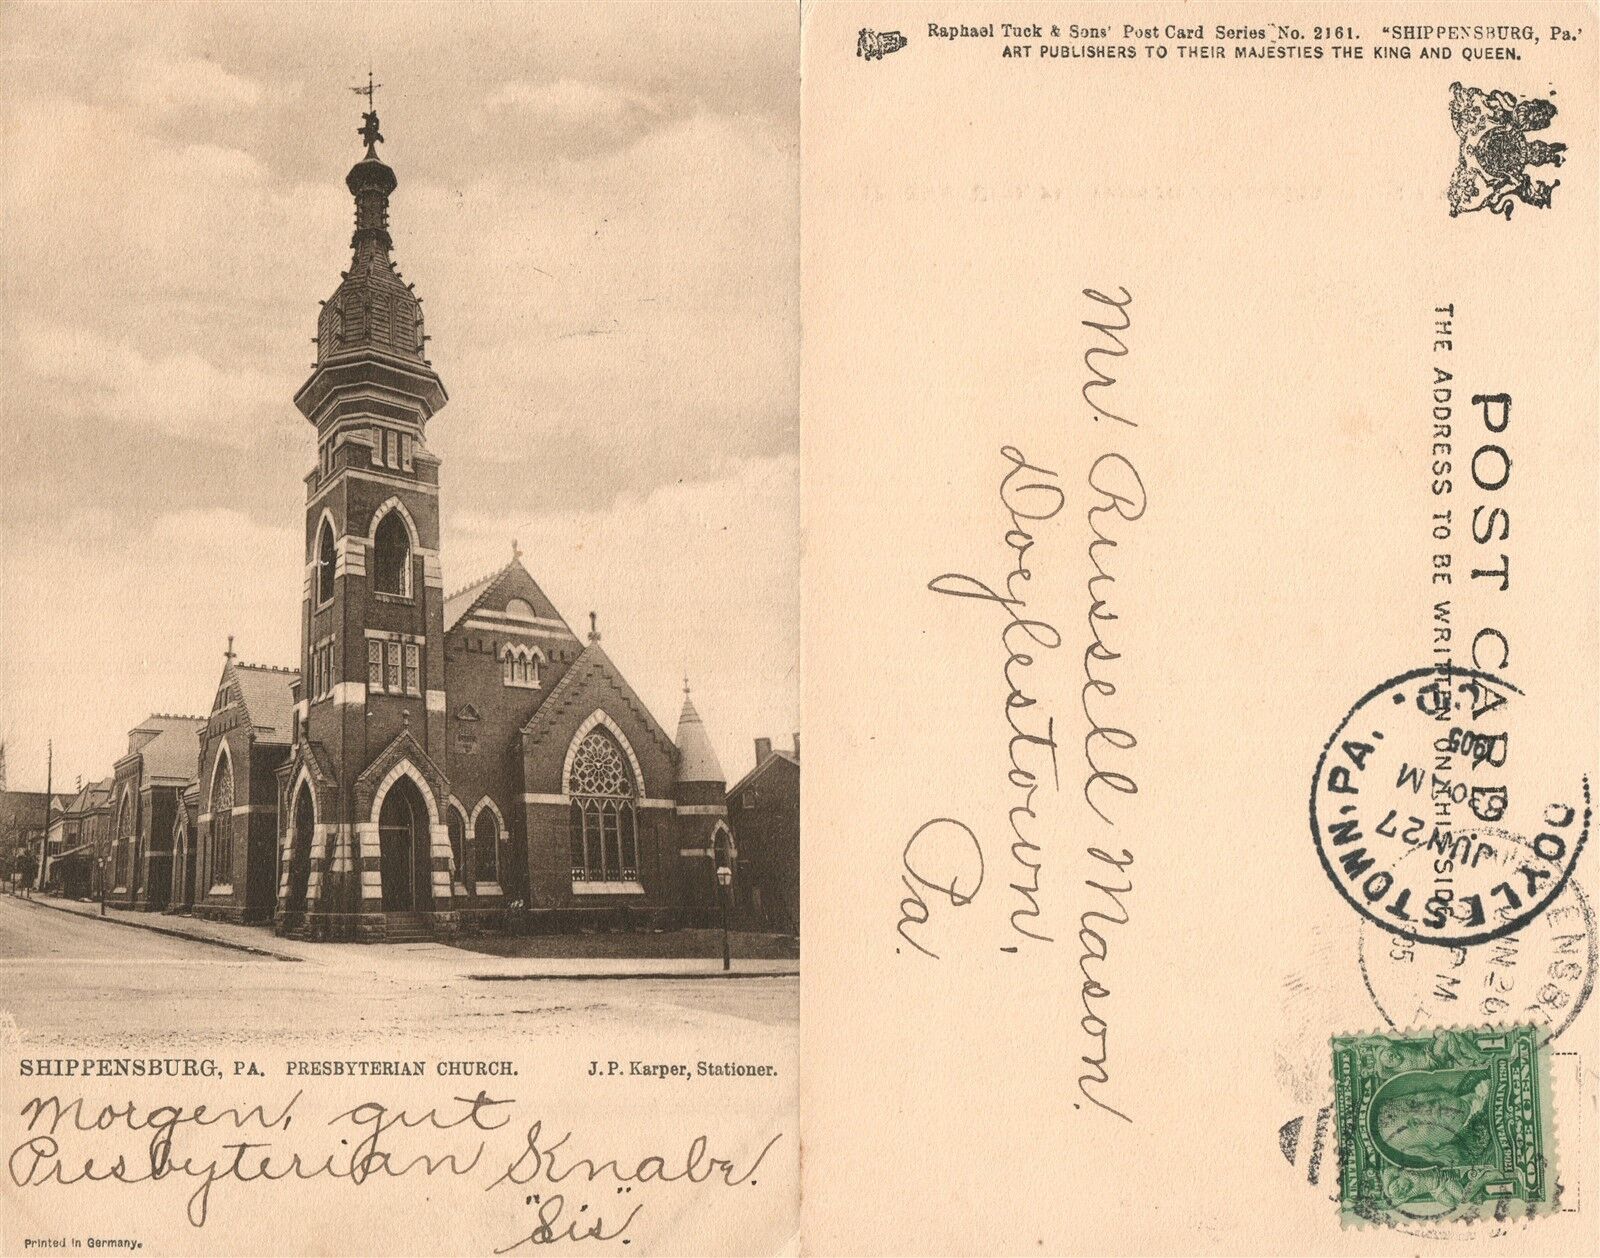 SHIPPENSBURG, PA. PRESBYTERIAN CHURCH. J. P. Karper, Stationer.
Morgen, gut
Presbyterian Knabe.
"Sis".
Printed in Germany.
Raphael Tuck & Sons' Post Card Series No. 2161. "SHIPPENSBURG, Pa.'
ART PUBLISHERS TO THEIR MAJESTIES THE KING AND QUEEN.
POST CARD
THE ADDRESS TO BE WRITTEN ON THIS SIDE
Mr. Russell Mason.
Doylestown,
Pa.
DOYLESTOWN, PA.
JUN 27
30 M
1905
REC'D.
ENSBU
JUN 26
PM
SERIES 1902
POSTAGE
ONE CENT